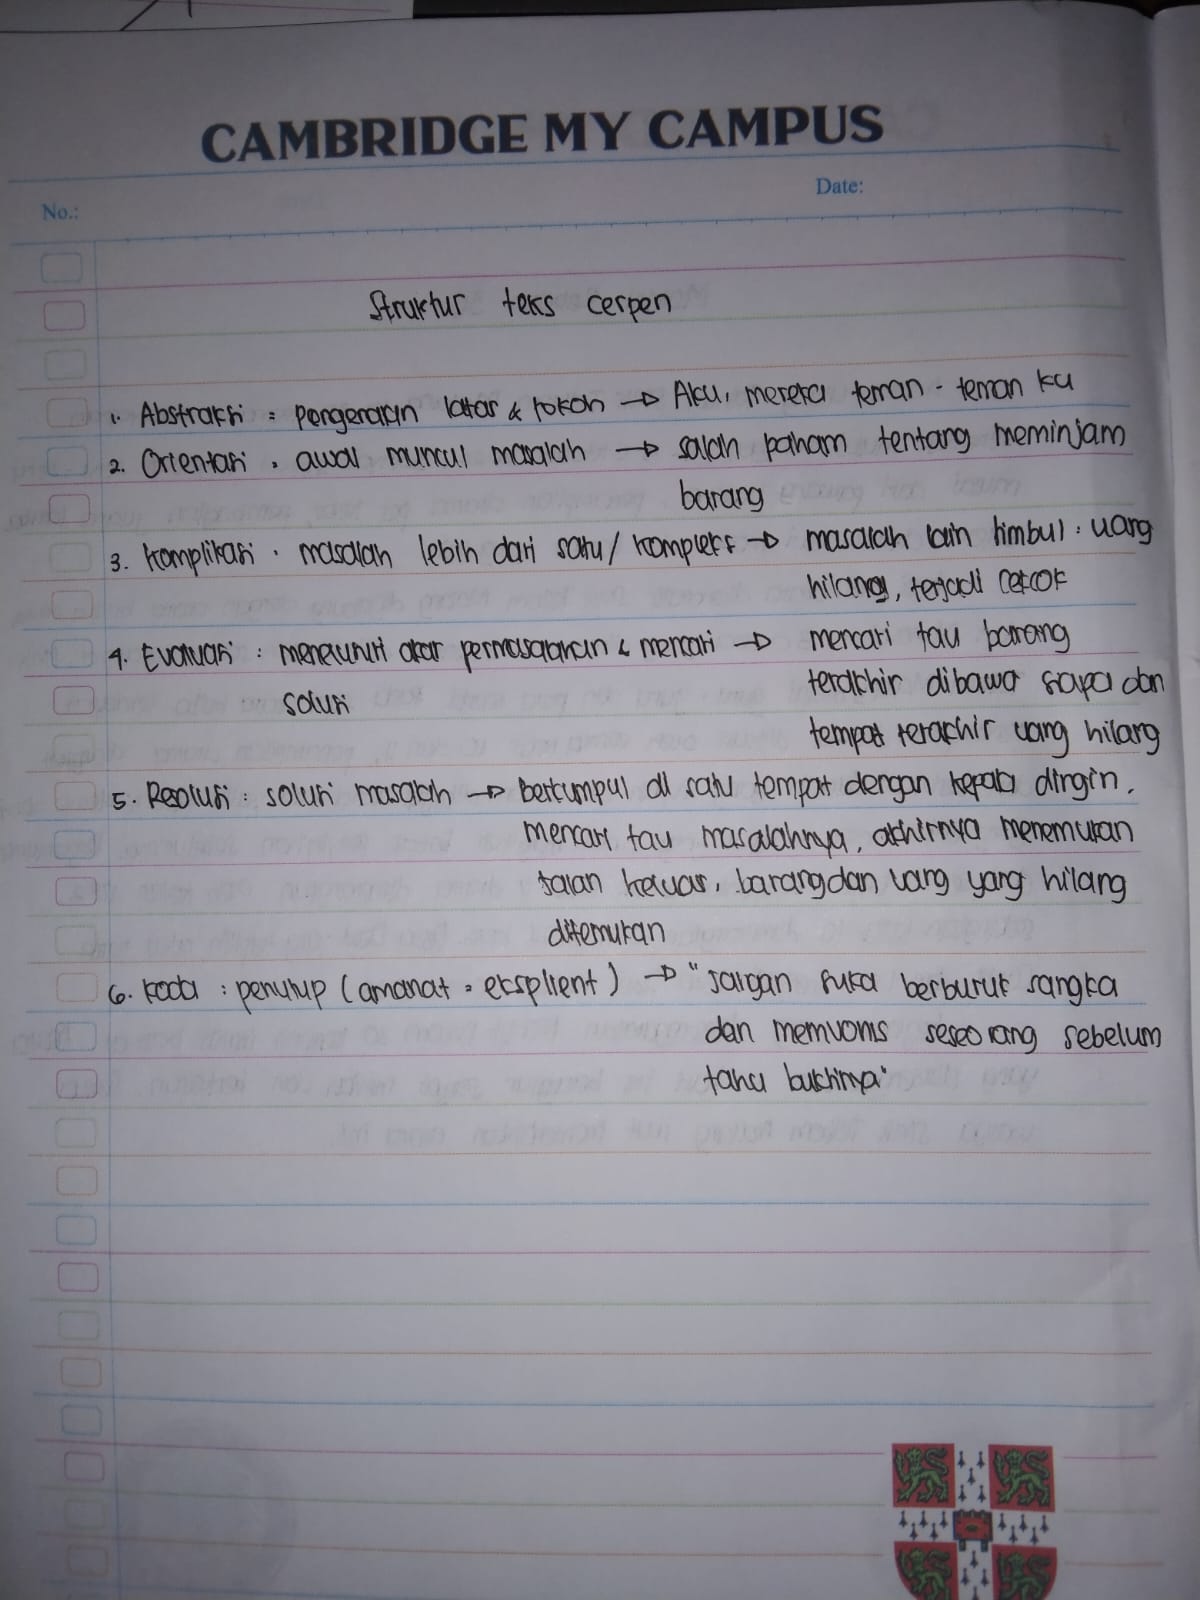 CAMBRIDGE MY CAMPUS
No.:
Date:
Struktur teks cerpen
1. Abstraksi : pengenalan latar & tokoh → Aku, mereka teman - teman ku
2. Orientasi : awal muncul masalah → salah paham tentang meminjam
barang
3. Komplikasi : masalah lebih dari satu / kompleks → masalah lain timbul : uang
hilang, terjadi cekcok
4. Evaluasi : menelusuri akar permasalahan & mencari → mencari tau barang
solusi
terakhir dibawa siapa dan
tempat terakhir uang hilang
5. Resolusi : solusi masalah → berkumpul di satu tempat dengan kepala dingin,
mencari tau masalahnya, akhirnya menemukan
jalan keluar, barang dan uang yang hilang
ditemukan
6. Koda : penutup (amanat = eksplient) → "jangan suka berburuk sangka
dan memvonis seseorang sebelum
tahu buktinya"